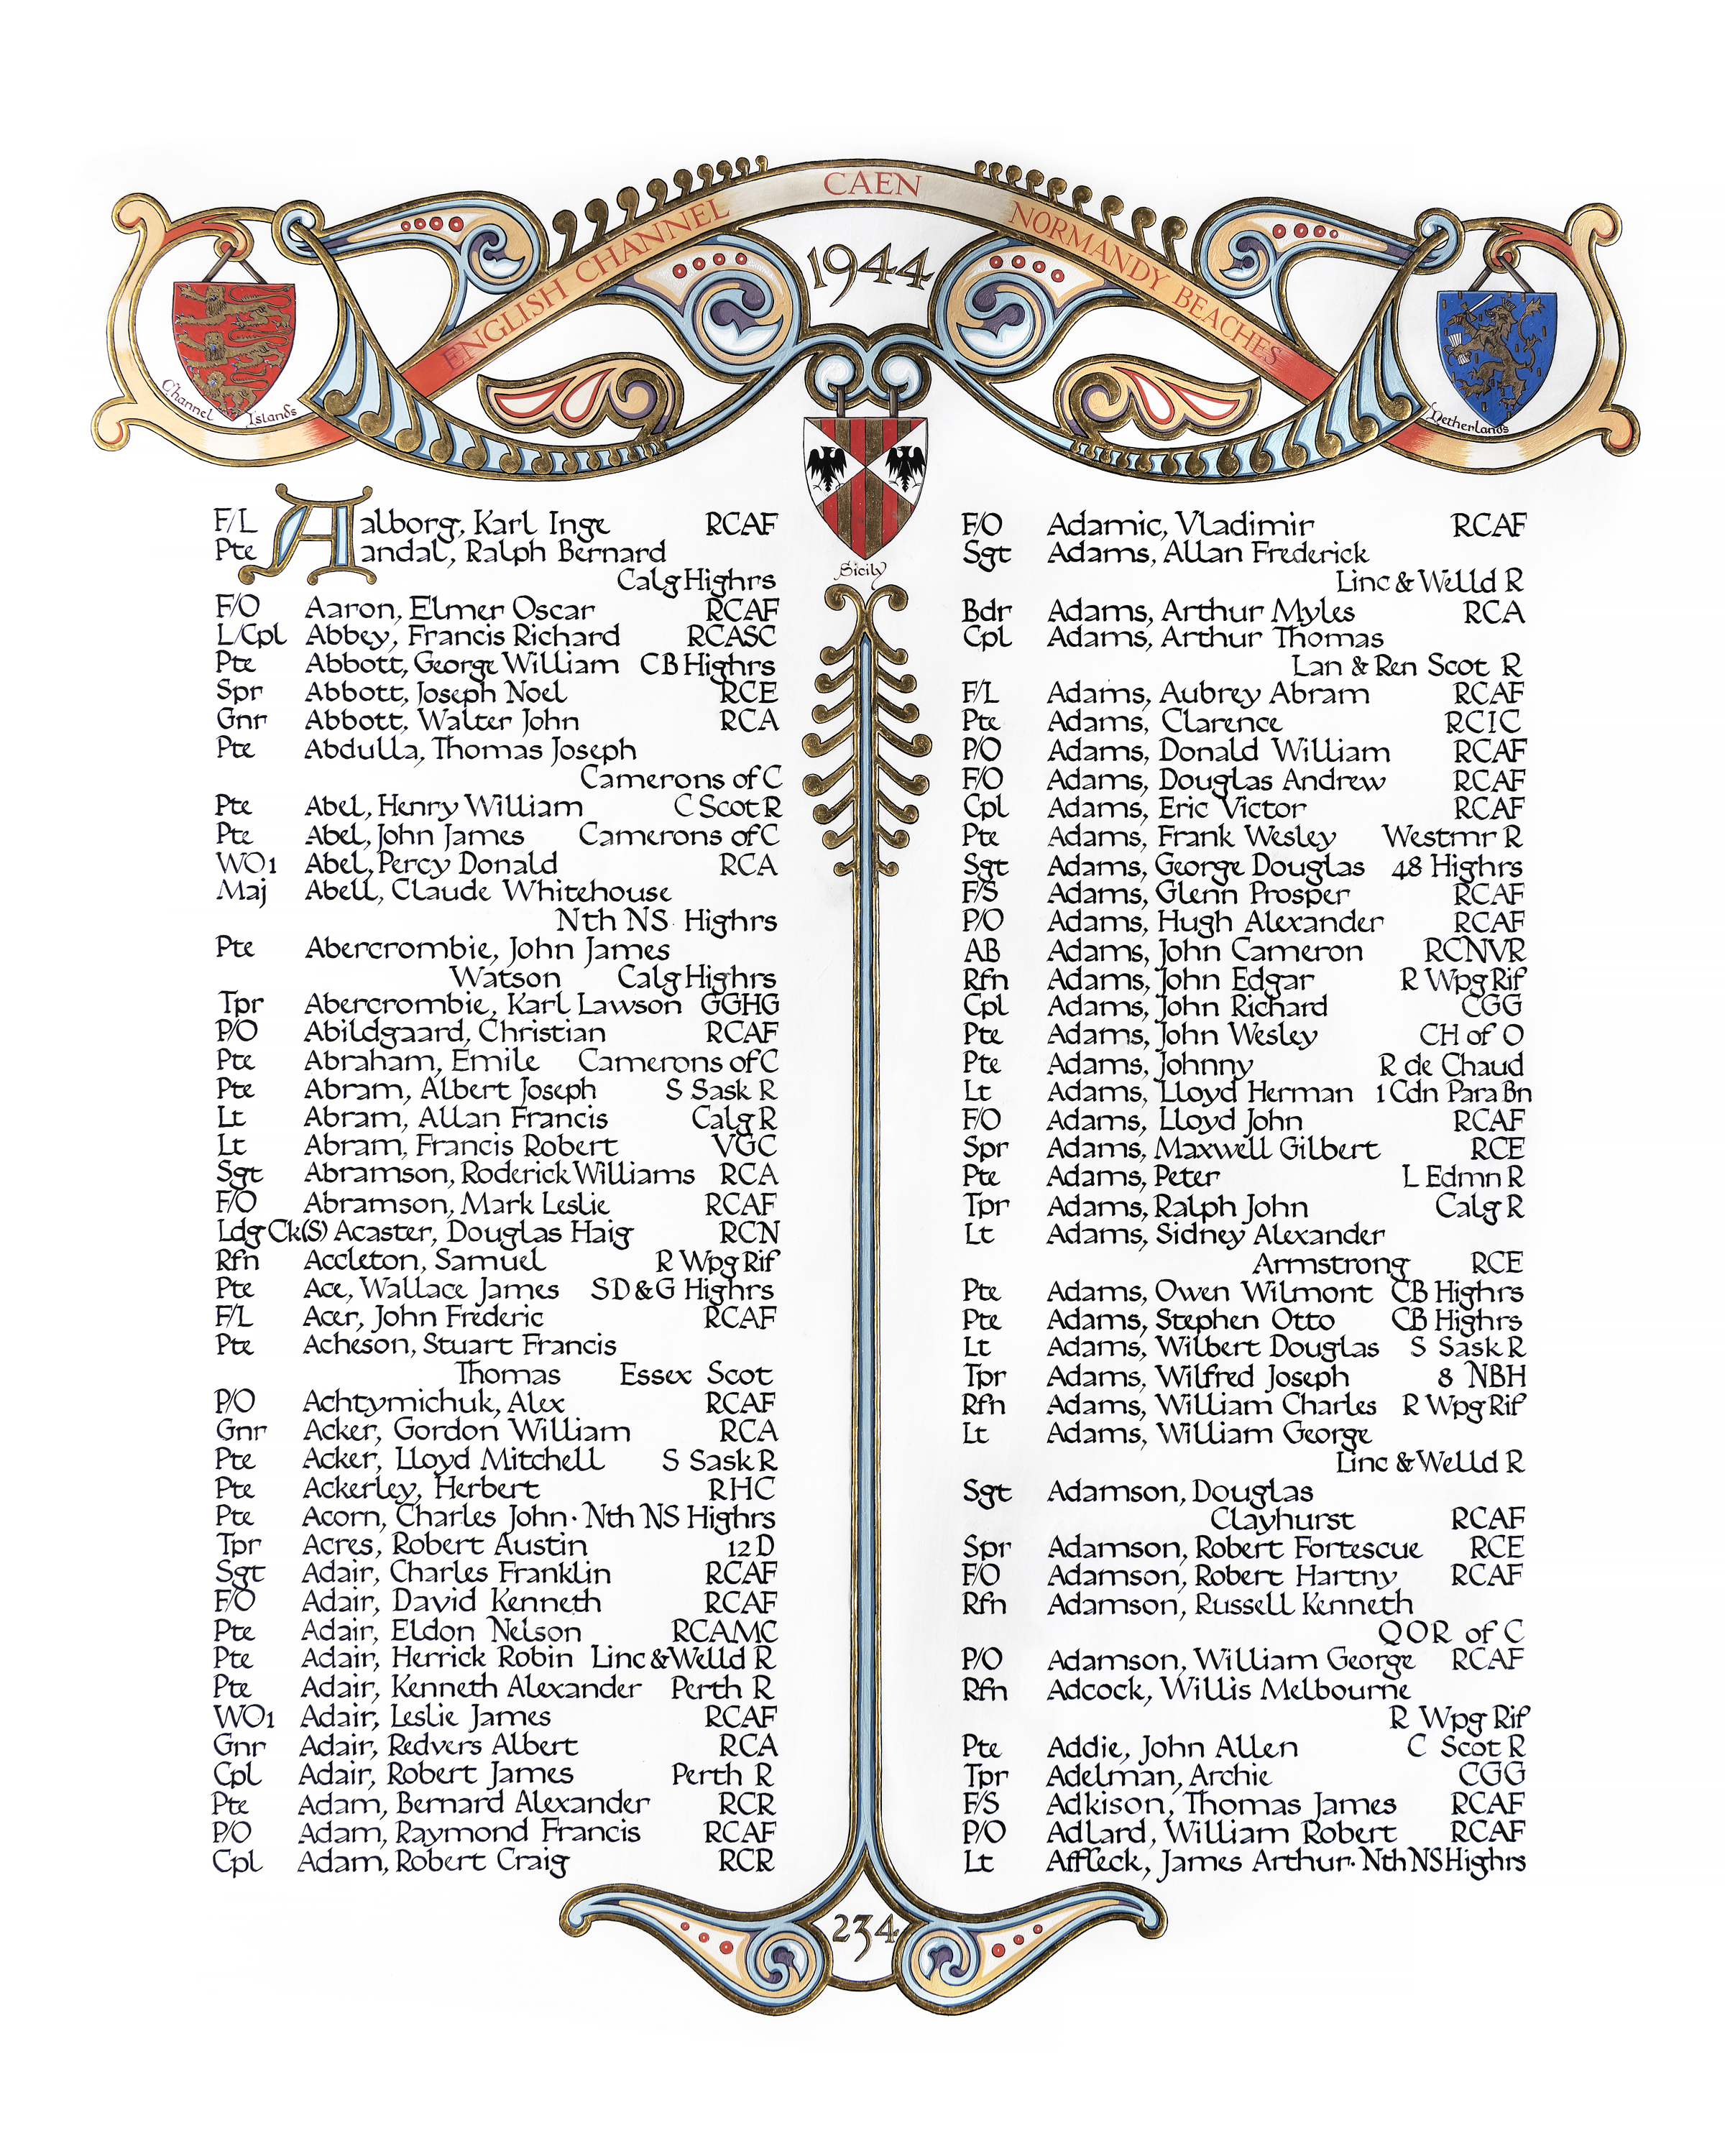 ENGLISH CHANNEL CAEN NORMANDY BEACHES
1944
Channel Islands
Netherlands
Sicily
F/L Aalborg, Karl Inge RCAF
Pte Aandal, Ralph Bernard
Calg Highrs
F/O Aaron, Elmer Oscar RCAF
L/Cpl Abbey, Francis Richard RCASC
Pte Abbott, George William CB Highrs
Spr Abbott, Joseph Noel RCE
Gnr Abbott, Walter John RCA
Pte Abdulla, Thomas Joseph
Camerons of C
Pte Abel, Henry William C Scot R
Pte Abel, John James Camerons of C
WO1 Abel, Percy Donald RCA
Maj Abell, Claude Whitehouse
Nth NS Highrs
Pte Abercrombie, John James
Watson Calg Highrs
Tpr Abercrombie, Karl Lawson GGHG
P/O Abildgaard, Christian RCAF
Pte Abraham, Emile Camerons of C
Pte Abram, Albert Joseph S Sask R
Lt Abram, Allan Francis Calg R
Lt Abram, Francis Robert VGC
Sgt Abramson, Roderick Williams RCA
F/O Abramson, Mark Leslie RCAF
Ldg Ck(S) Acaster, Douglas Haig RCN
Rfn Accleton, Samuel R Wpg Rif
Pte Ace, Wallace James SD&G Highrs
F/L Acer, John Frederic RCAF
Pte Acheson, Stuart Francis
Thomas Essex Scot
P/O Achtymichuk, Alex RCAF
Gnr Acker, Gordon William RCA
Pte Acker, Lloyd Mitchell S Sask R
Pte Ackerley, Herbert RHC
Pte Acorn, Charles John· Nth NS Highrs
Tpr Acres, Robert Austin 12 D
Sgt Adair, Charles Franklin RCAF
F/O Adair, David Kenneth RCAF
Pte Adair, Eldon Nelson RCAMC
Pte Adair, Herrick Robin Linc & Welld R
Pte Adair, Kenneth Alexander Perth R
WO1 Adair, Leslie James RCAF
Gnr Adair, Redvers Albert RCA
Cpl Adair, Robert James Perth R
Pte Adam, Bernard Alexander RCR
P/O Adam, Raymond Francis RCAF
Cpl Adam, Robert Craig RCR
F/O Adamic, Vladimir RCAF
Sgt Adams, Allan Frederick
Linc & Welld R
Bdr Adams, Arthur Myles RCA
Cpl Adams, Arthur Thomas
Lan & Ren Scot R
F/L Adams, Aubrey Abram RCAF
Pte Adams, Clarence RCIC
P/O Adams, Donald William RCAF
F/O Adams, Douglas Andrew RCAF
Cpl Adams, Eric Victor RCAF
Pte Adams, Frank Wesley Westmr R
Sgt Adams, George Douglas 48 Highrs
F/S Adams, Glenn Prosper RCAF
P/O Adams, Hugh Alexander RCAF
AB Adams, John Cameron RCNVR
Rfn Adams, John Edgar R Wpg Rif
Cpl Adams, John Richard CGG
Pte Adams, John Wesley CH of O
Pte Adams, Johnny R de Chaud
Lt Adams, Lloyd Herman 1 Cdn Para Bn
F/O Adams, Lloyd John RCAF
Spr Adams, Maxwell Gilbert RCE
Pte Adams, Peter L Edmn R
Tpr Adams, Ralph John Calg R
Lt Adams, Sidney Alexander
Armstrong RCE
Pte Adams, Owen Wilmont CB Highrs
Pte Adams, Stephen Otto CB Highrs
Lt Adams, Wilbert Douglas S Sask R
Tpr Adams, Wilfred Joseph 8 NBH
Rfn Adams, William Charles R Wpg Rif
Lt Adams, William George
Linc & Welld R
Sgt Adamson, Douglas
Clayhurst RCAF
Spr Adamson, Robert Fortescue RCE
F/O Adamson, Robert Hartny RCAF
Rfn Adamson, Russell Kenneth
QOR of C
P/O Adamson, William George RCAF
Rfn Adcock, Willis Melbourne
R Wpg Rif
Pte Addie, John Allen C Scot R
Tpr Adelman, Archie CGG
F/S Adkison, Thomas James RCAF
P/O Adlard, William Robert RCAF
Lt Affleck, James Arthur· Nth NS Highrs
234